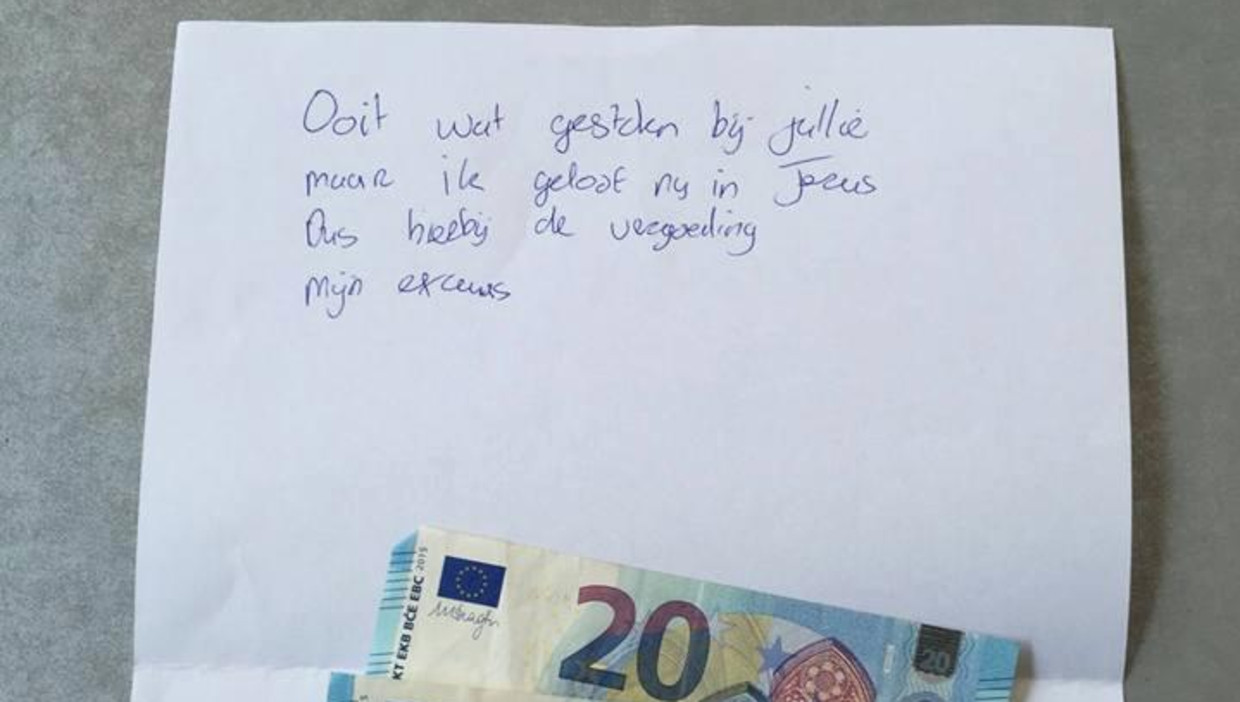 Ooit wat gestolen bij jullie
maar ik geloof nu in Jezus
Dus hierbij de vergoeding
Mijn excuus
KT EKB BČE EBC 2015
20
20